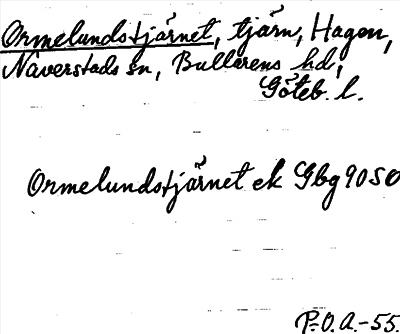 Ormelundstjärnet, tjärn, Hagen,
Naverstads sn, Bullarens hd,
Göteb. l.
Ormelundstjärnet ek Gbg 9050
P.O.A.-55.